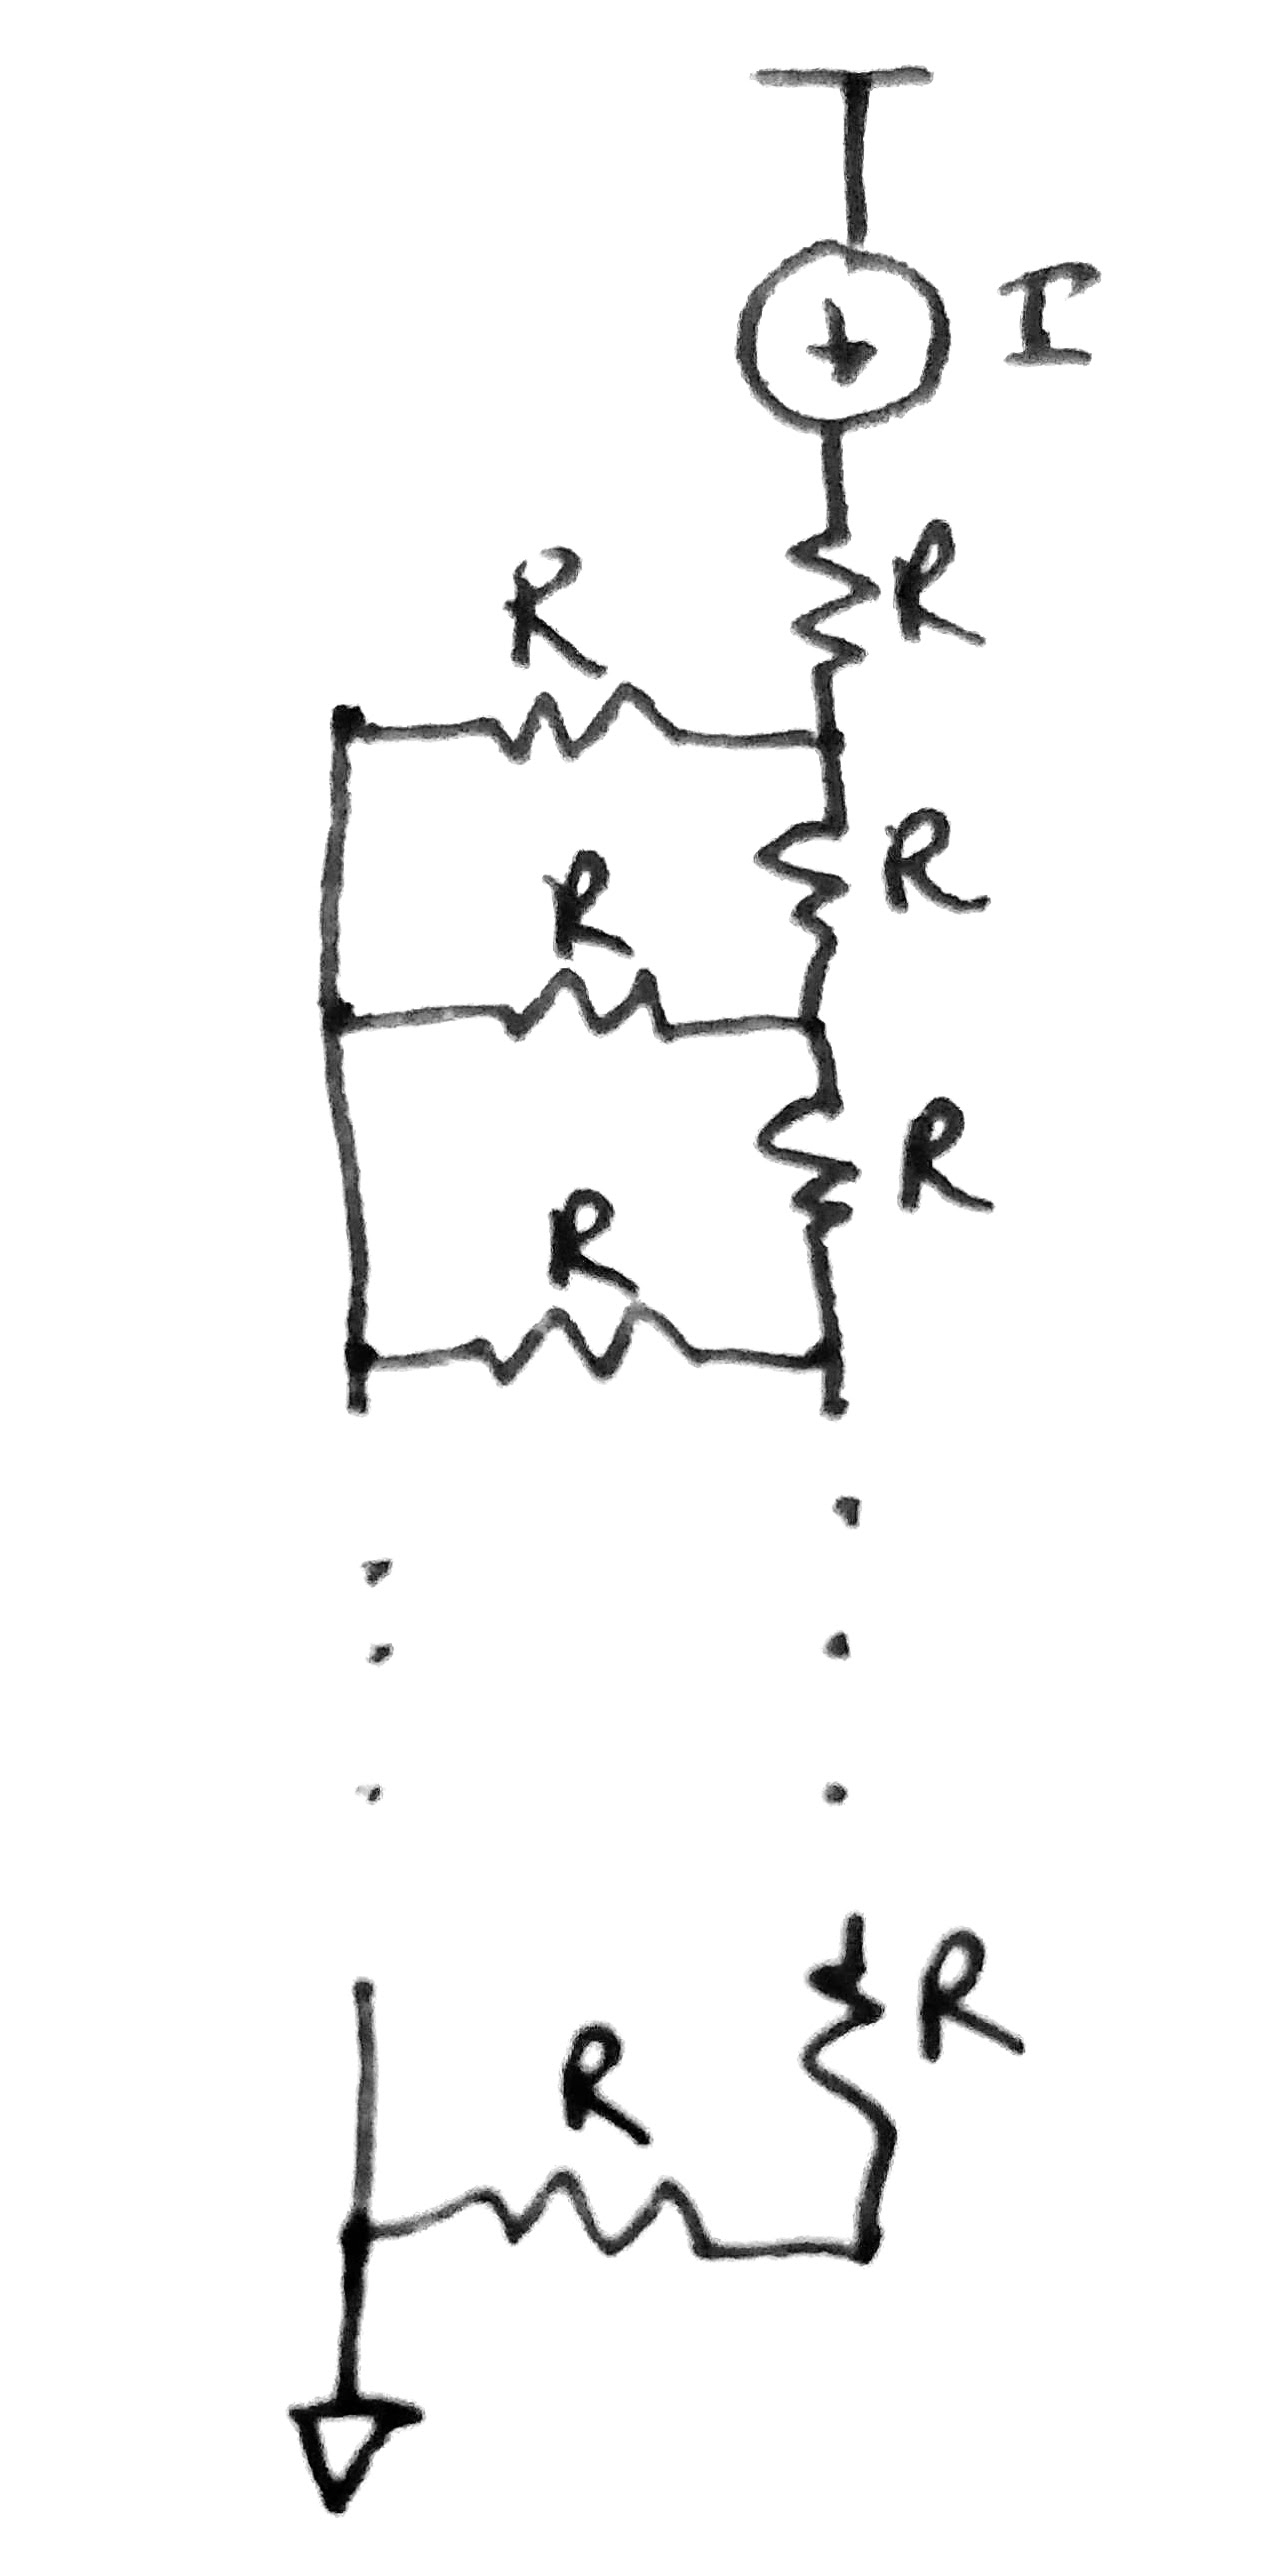 I
R
R
R
R
R
R
R
R